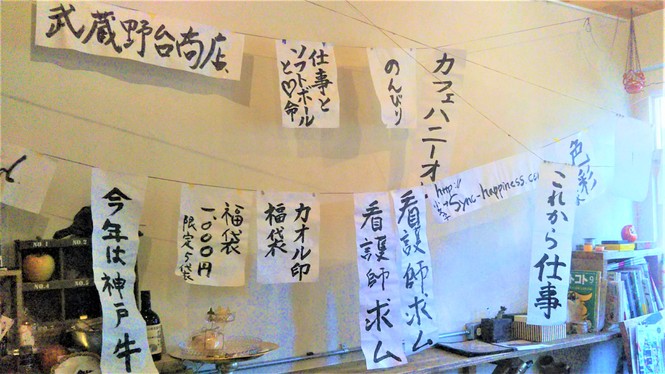 武蔵野台商店
仕事と
ソフトボール
と♡命
のんびり
カフェハニーオ
色彩
http://
sync-happiness.com
今年は神戸牛
福袋
1,000円
限定5袋
カオル印
福袋
看護師求ム
看護師求ム
これから仕事
NO.1
NO.2